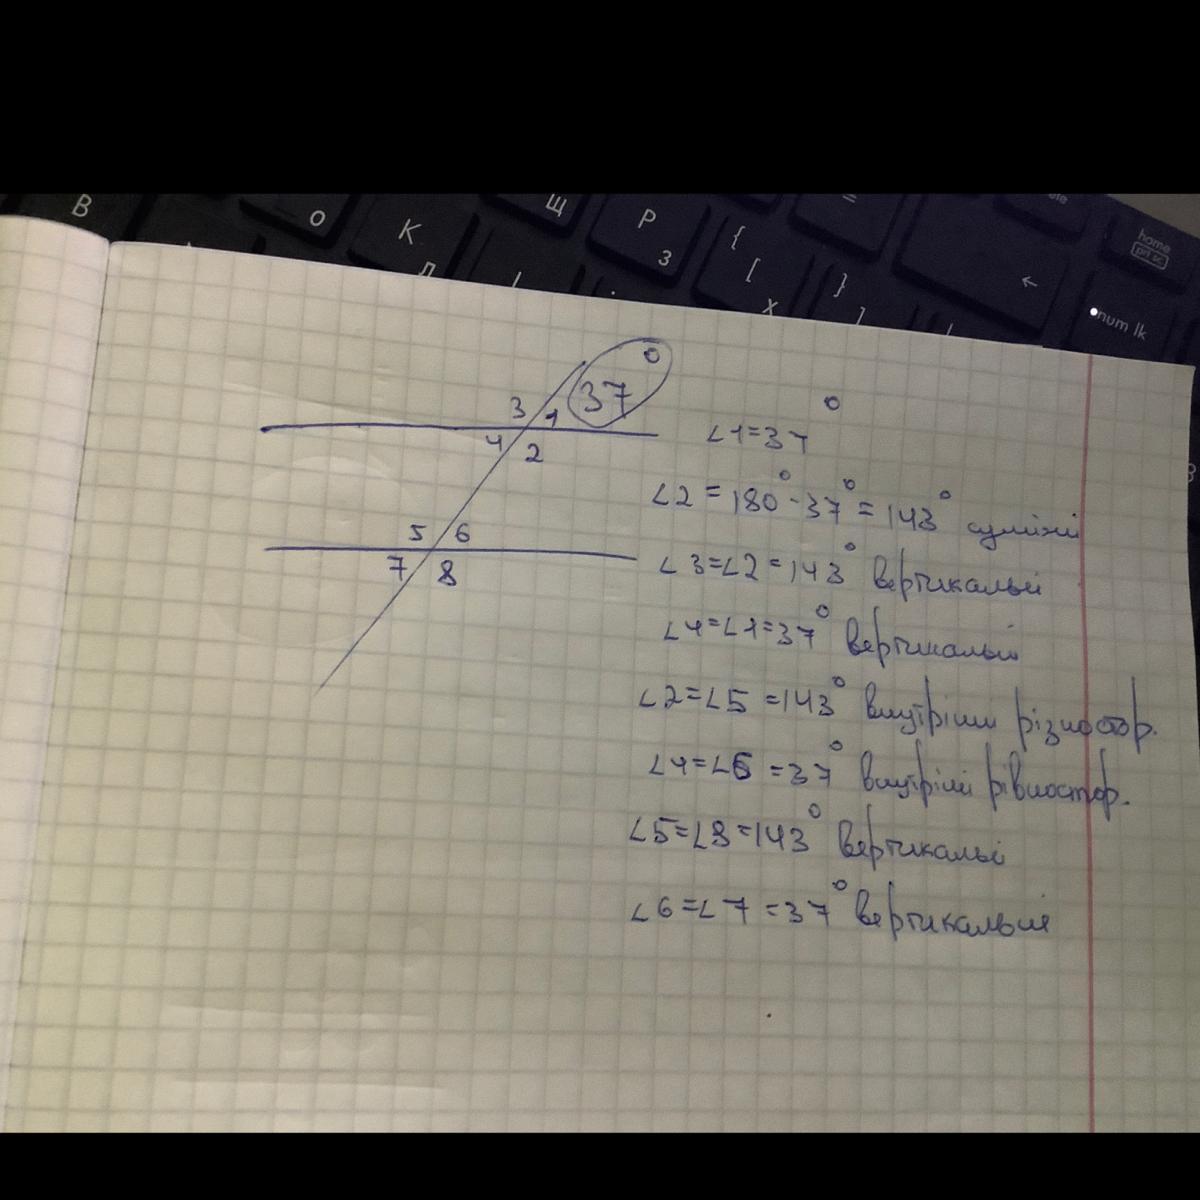 В
О
Л
К
Щ
Р
З
{
[
Х
}
]
=
←
home
prt sc
num lk
37°
3 1
4 2
5 6
7 8
∠1=37°
∠2=180°-37°=143° суміжні
∠3=∠2=143° вертикальні
∠4=∠1=37° вертикальні
∠2=∠5=143° внутрішн різностор.
∠4=∠6=37° внутрішні рівностор.
∠5=∠8=143° вертикальні
∠6=∠7=37° вертикальні